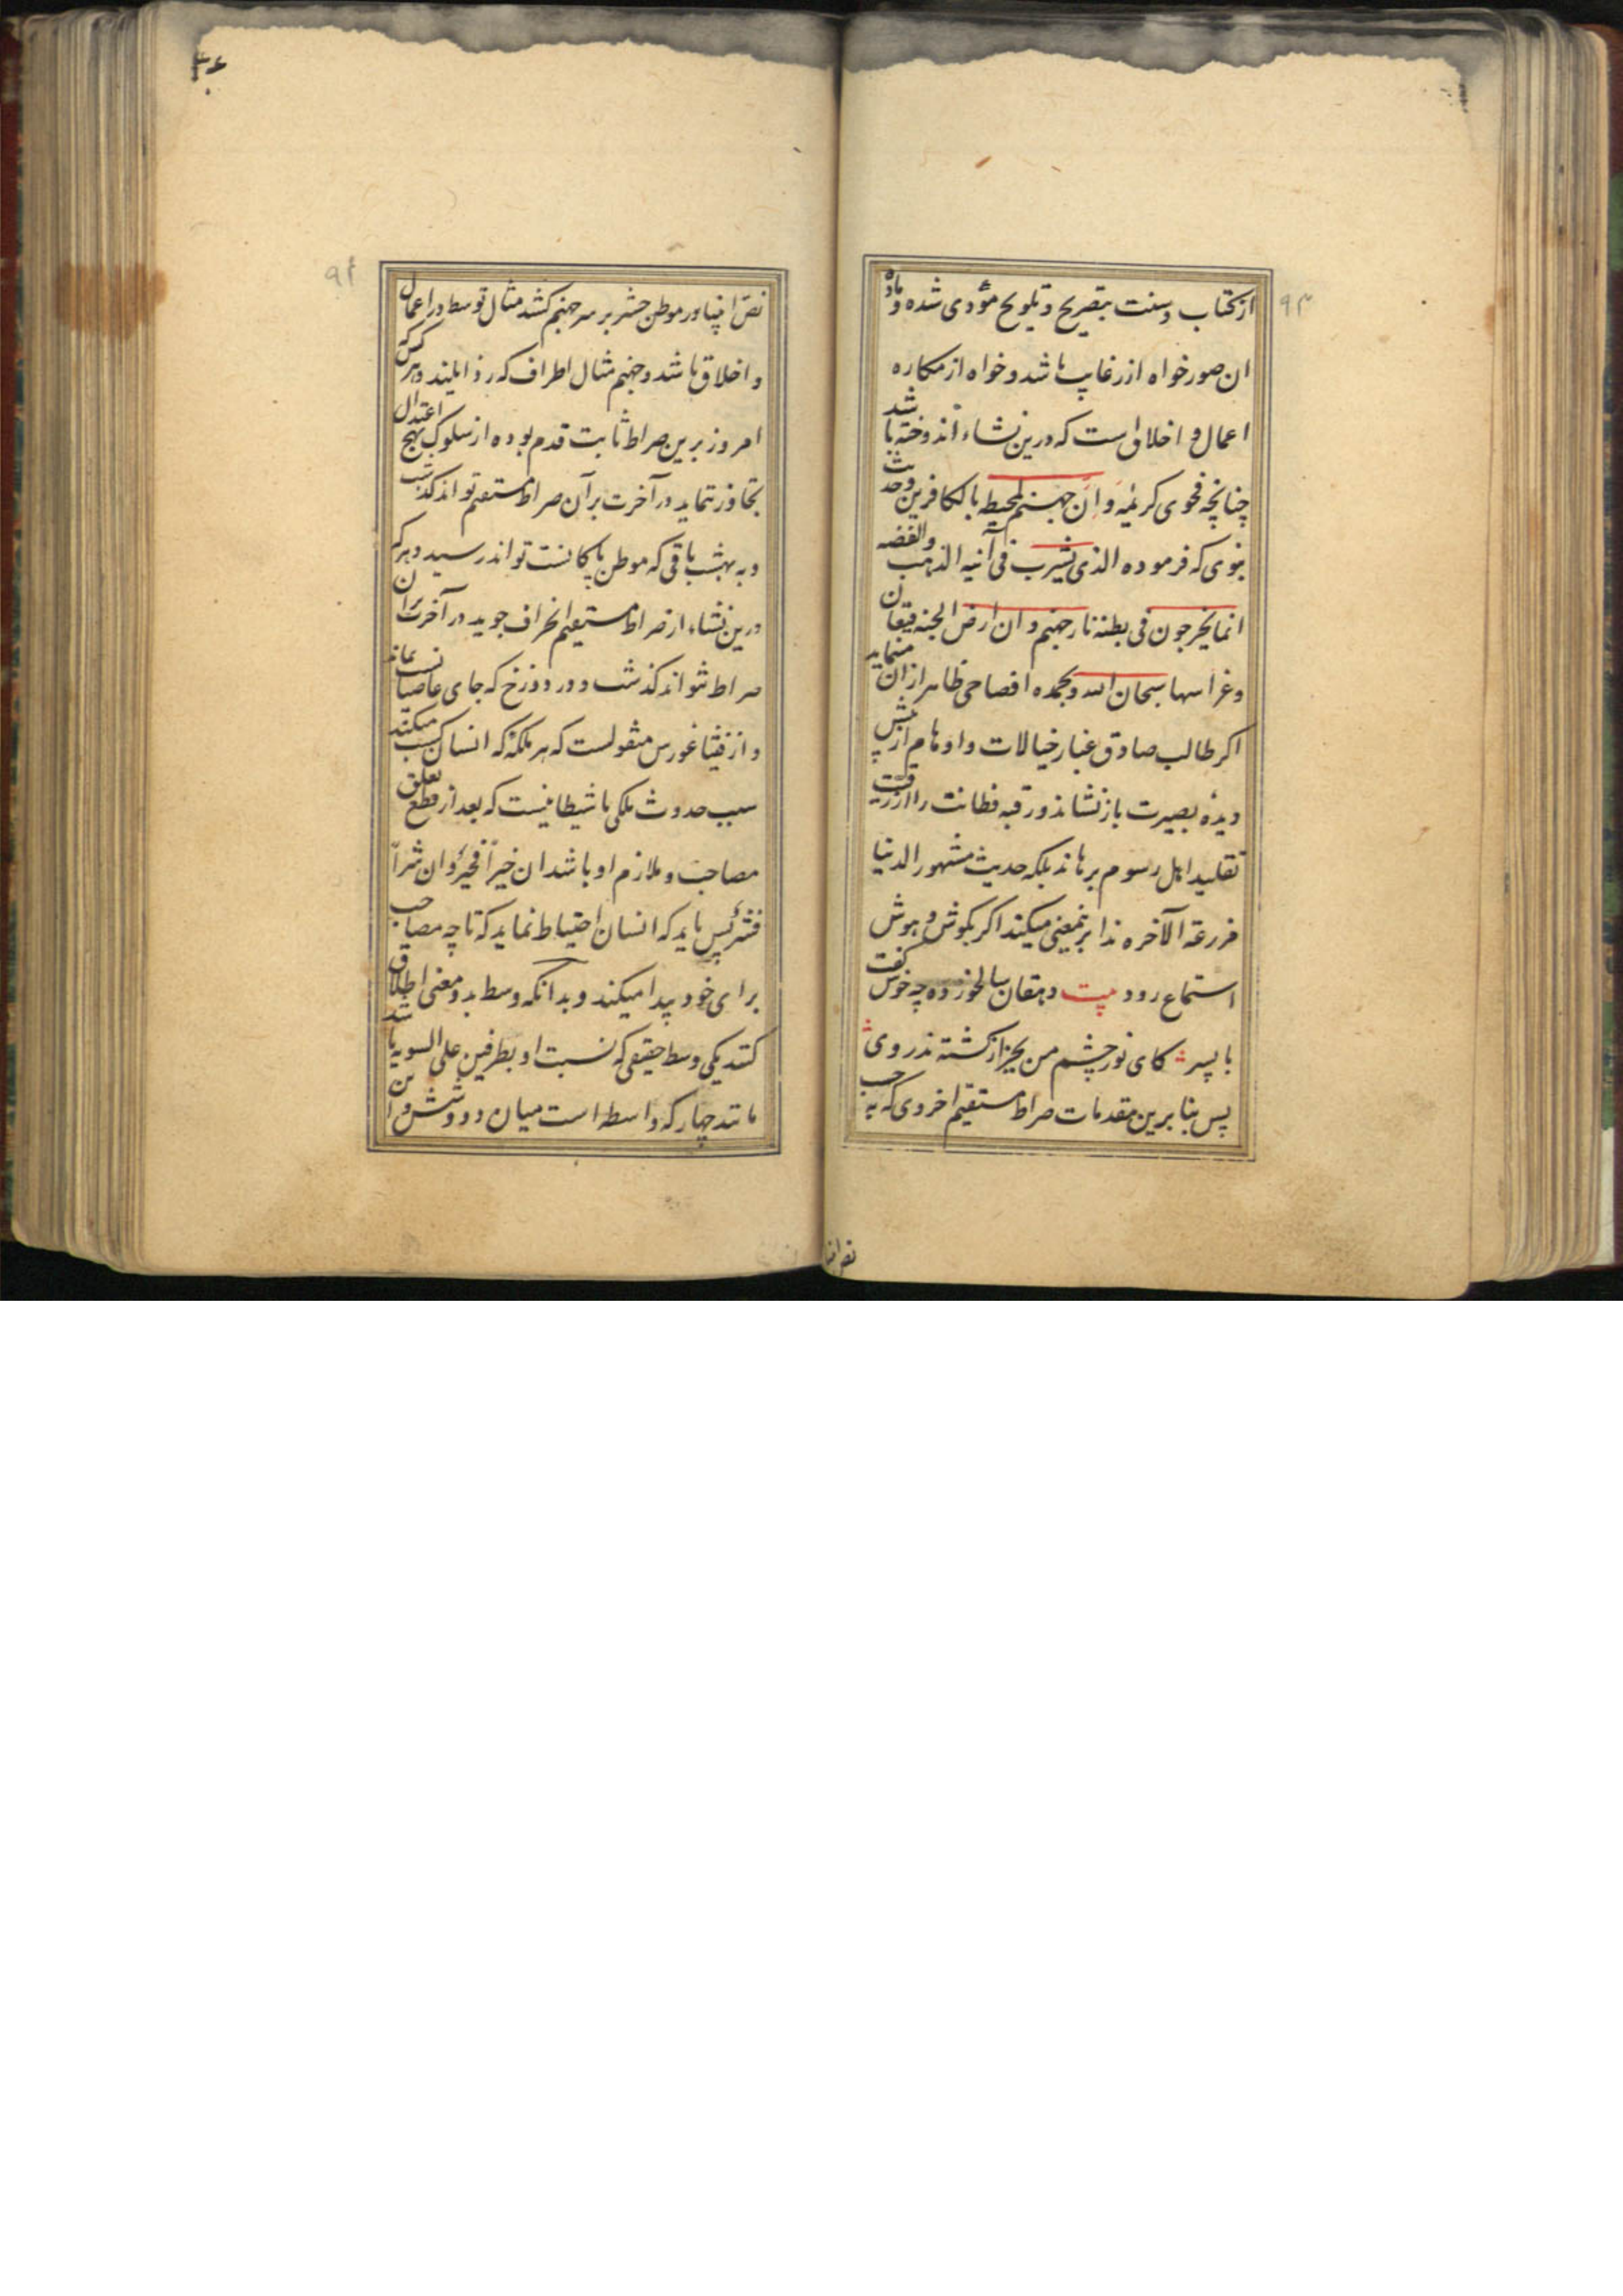 ۹۳
از کتاب و سنت بتصریح و تلویح مؤدی شده و ماده
ان صور خواه از رغایب باشد و خواه از مکاره
اعمال و اخلاق است که درین نشاء اندوخته باشد
چنانچه فحوی کریمه و ان جهنم لمحیطه بالکافرین و حدیث
نبوی که فرموده الذی یشرب فی آنیه الذهب والفضه
انما یجرجون فی بطنه نار جهنم و ان ارض الجنه قیعان
و غراسها سبحان الله و بحمده افصاحی ظاهر ازان مینماید
اکر طالب صادق غبار خیالات و اوهام از پیش
دیدهٔ بصیرت باز نشاند و رقبه فطانت را از رقیت
تقلید اهل رسوم برهاند بلکه حدیث مشهور الدنیا
مزرعة الآخره ندا برینمعنی میکند اکر بکوش و هوش
استماع رود بیت دهقان سالخورده چه خوش کفت
با پسر کای نور چشم من بجز از کشته ندروی
پس بنا برین مقدمات صراط مستقیم اخروی که به حسب
نص انبیا
۹۴
نص انبیا در موطن حشر بر سر جهنم کشند مثال توسط در اعمال
و اخلاق باشد و جهنم مثال اطراف که رذایلند و هر کس که
امروز برین صراط ثابت قدم بوده از سلوک نهج اعتدال
تجاوز ننماید در آخرت بر آن صراط مستقیم تواند کذشت
و به بهشت باقی که موطن پاکانست تواند رسید و هر که
درین نشاء از صراط مستقیم انحراف جوید در آخرت بران
صراط نتواند کذشت و در دوزخ که جای عاصیانست بماند
و از فیثاغورس منقولست که هر ملکهٔ که انسان کسب میکند
سبب حدوث ملکی یا شیطانیست که بعد از قطع تعلق
مصاحب و ملازم او باشد ان خیراً فخیرٌ و ان شراً
فشرٌ پس باید که انسان احتیاط نماید که تا چه مصاحب
برای خود پیدا میکند و بدانکه وسط بدو معنی اطلاق
کنند یکی وسط حقیقی که نسبت او بطرفین علی السویه باشد
مانند چهار که واسطه است میان دو و شش و این